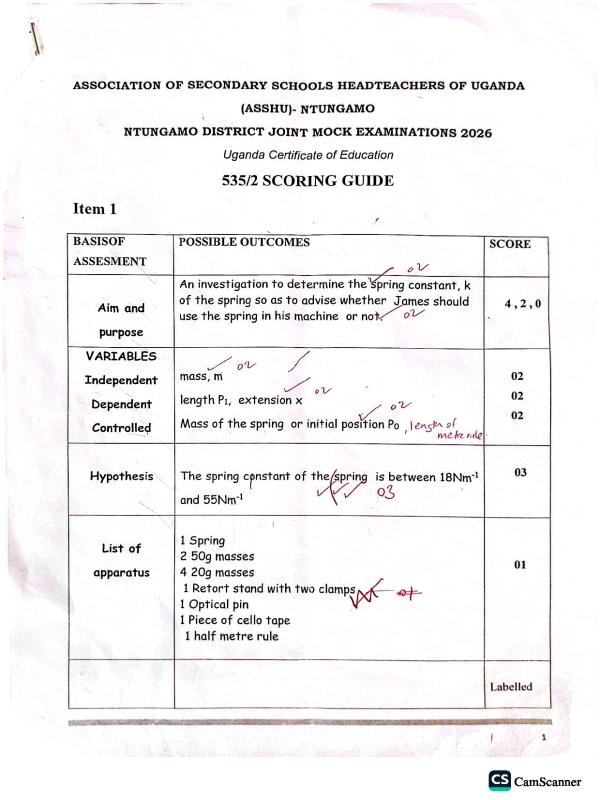 ASSOCIATION OF SECONDARY SCHOOLS HEADTEACHERS OF UGANDA
(ASSHU)- NTUNGAMO
NTUNGAMO DISTRICT JOINT MOCK EXAMINATIONS 2026
Uganda Certificate of Education
535/2 SCORING GUIDE
Item 1
BASISOF ASSESMENT
POSSIBLE OUTCOMES
SCORE
Aim and purpose
02
An investigation to determine the spring constant, k
of the spring so as to advise whether James should
use the spring in his machine or not. 02
4, 2, 0
VARIABLES
Independent
mass, m 02
02
Dependent
length P₁, extension x 02
02
Controlled
02
Mass of the spring or initial position Po , length of metre rule
02
Hypothesis
The spring constant of the spring is between 18Nm⁻¹
and 55Nm⁻¹ 03
03
List of apparatus
1 Spring
2 50g masses
4 20g masses
1 Retort stand with two clamps
1 Optical pin
1 Piece of cello tape
1 half metre rule
01
Labelled
1
CS CamScanner